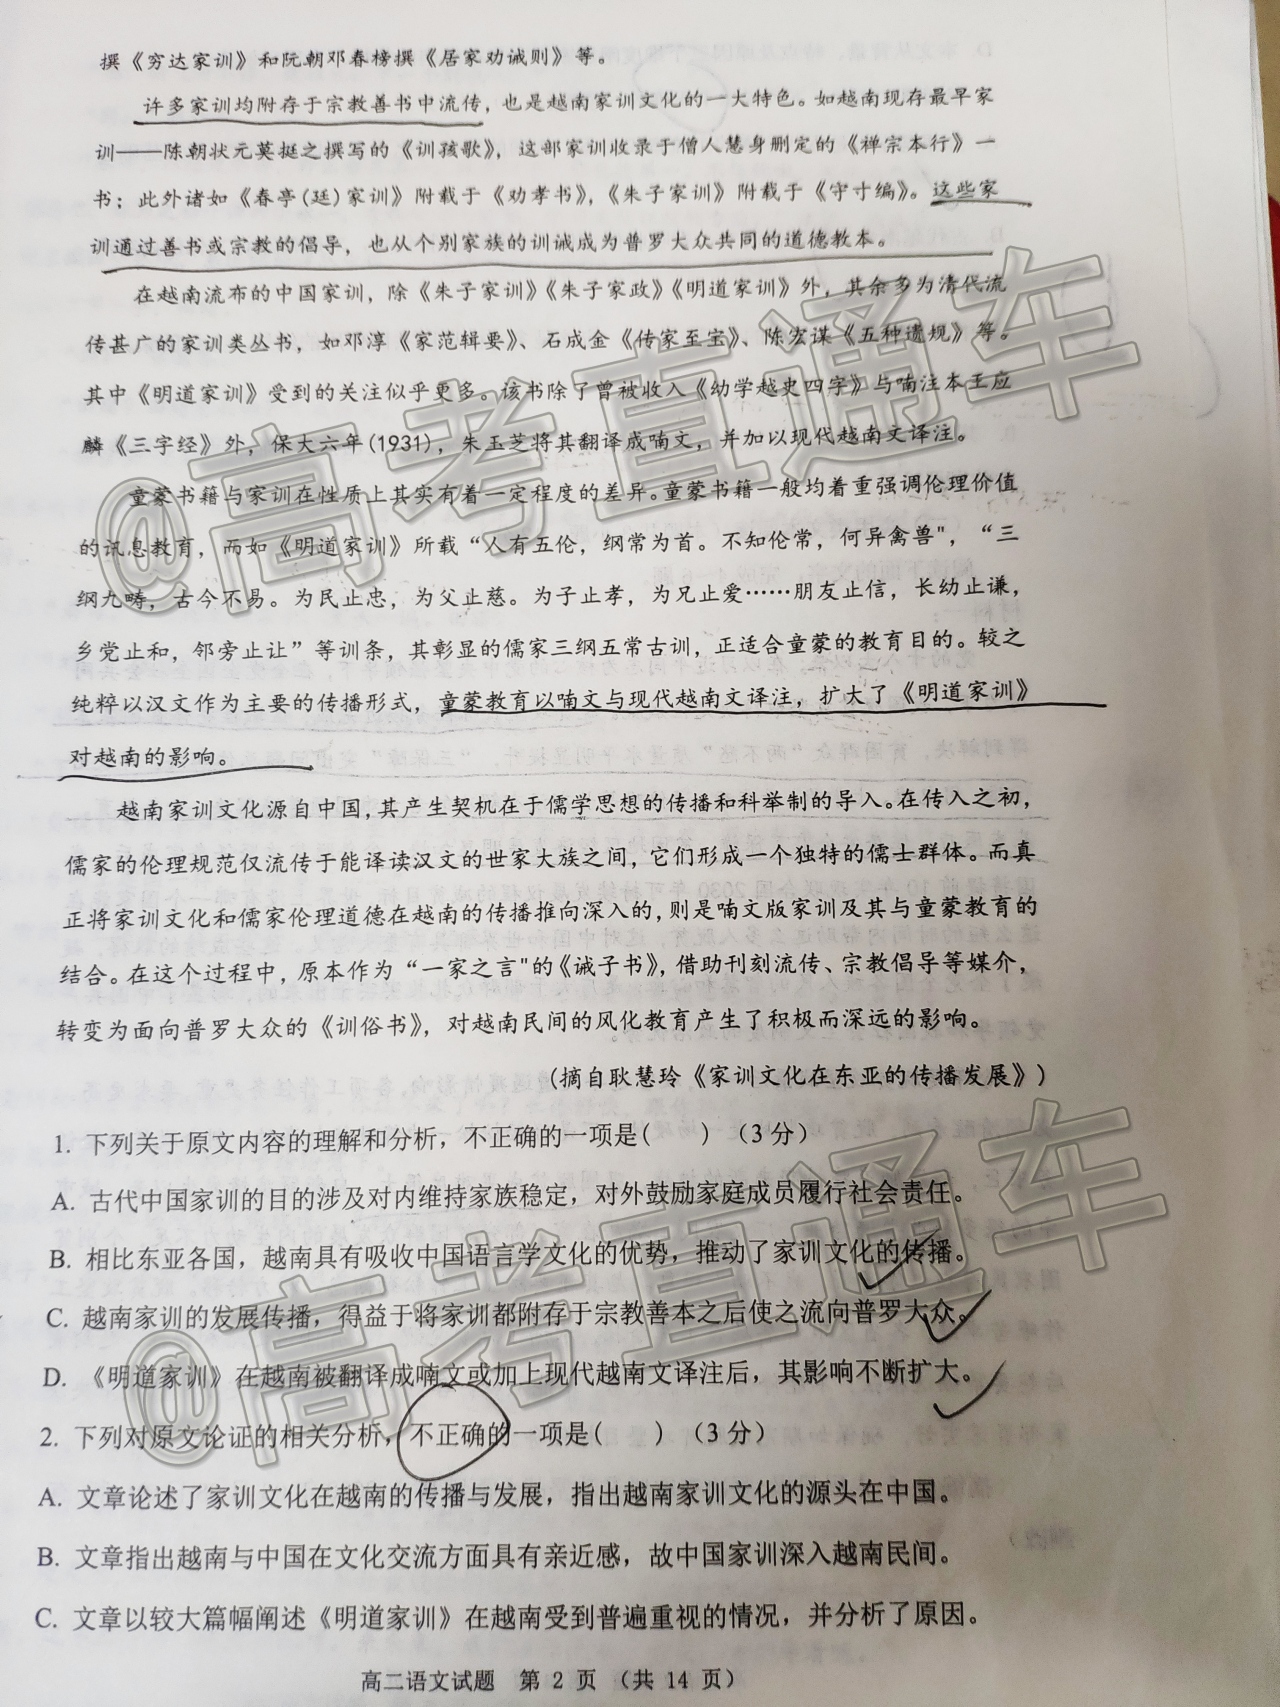 撰《穷达家训》和阮朝邓春榜撰《居家劝诫则》等。
许多家训均附存于宗教善书中流传，也是越南家训文化的一大特色。如越南现存最早家
训——陈朝状元莫挺之撰写的《训孩歌》，这部家训收录于僧人慧身删定的《禅宗本行》一
书；此外诸如《春亭(廷)家训》附载于《劝孝书》，《朱子家训》附载于《守寸编》。这些家
训通过善书或宗教的倡导，也从个别家族的训诫成为普罗大众共同的道德教本。
在越南流布的中国家训，除《朱子家训》《朱子家政》《明道家训》外，其余多为清代流
传甚广的家训类丛书，如邓淳《家范辑要》、石成金《传家至宝》、陈宏谋《五种遗规》等。
其中《明道家训》受到的关注似乎更多。该书除了曾被收入《幼学越史四字》与喃注本王应
麟《三字经》外，保大六年(1931)，朱玉芝将其翻译成喃文，并加以现代越南文译注。
童蒙书籍与家训在性质上其实有着一定程度的差异。童蒙书籍一般均着重强调伦理价值
的讯息教育，而如《明道家训》所载“人有五伦，纲常为首。不知伦常，何异禽兽"，“三
纲九畴，古今不易。为民止忠，为父止慈。为子止孝，为兄止爱……朋友止信，长幼止谦，
乡党止和，邻旁止让”等训条，其彰显的儒家三纲五常古训，正适合童蒙的教育目的。较之
纯粹以汉文作为主要的传播形式，童蒙教育以喃文与现代越南文译注，扩大了《明道家训》
对越南的影响。
越南家训文化源自中国，其产生契机在于儒学思想的传播和科举制的导入。在传入之初，
儒家的伦理规范仅流传于能译读汉文的世家大族之间，它们形成一个独特的儒士群体。而真
正将家训文化和儒家伦理道德在越南的传播推向深入的，则是喃文版家训及其与童蒙教育的
结合。在这个过程中，原本作为“一家之言"的《诫子书》，借助刊刻流传、宗教倡导等媒介，
转变为面向普罗大众的《训俗书》，对越南民间的风化教育产生了积极而深远的影响。
(摘自耿慧玲《家训文化在东亚的传播发展》)
1. 下列关于原文内容的理解和分析，不正确的一项是( )（3分）
A. 古代中国家训的目的涉及对内维持家族稳定，对外鼓励家庭成员履行社会责任。
B. 相比东亚各国，越南具有吸收中国语言学文化的优势，推动了家训文化的传播。
C. 越南家训的发展传播，得益于将家训都附存于宗教善本之后使之流向普罗大众。
D. 《明道家训》在越南被翻译成喃文或加上现代越南文译注后，其影响不断扩大。
2. 下列对原文论证的相关分析，不正确的一项是( )（3分）
A. 文章论述了家训文化在越南的传播与发展，指出越南家训文化的源头在中国。
B. 文章指出越南与中国在文化交流方面具有亲近感，故中国家训深入越南民间。
C. 文章以较大篇幅阐述《明道家训》在越南受到普遍重视的情况，并分析了原因。
高二语文试题 第 2 页 （共 14 页）
@高考直通车
@高考直通车